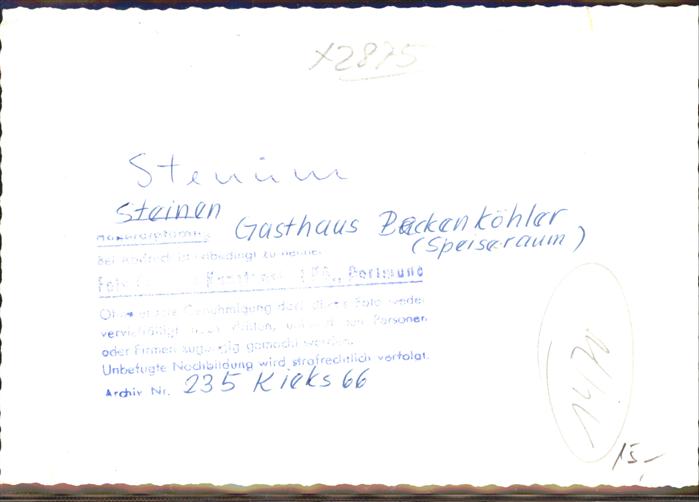 X2875
Stenum
Steinen
Gasthaus Backenköhler
(Speiseraum)
Bei Abdruck ist unbedingt zu nennen
Foto Dortmund
Ohne meine Genehmigung darf dieses Foto weder
vervielfältigt noch dritten, Personen
oder Firmen zugängig gemacht werden.
Unbefugte Nachbildung wird strafrechtlich verfolgt.
Archiv Nr. 235 Kieks 66
15,-